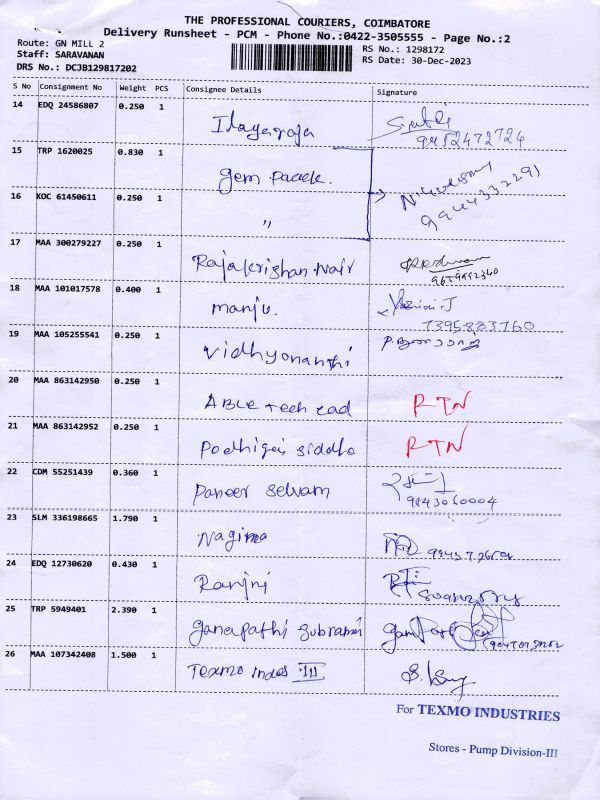 THE PROFESSIONAL COURIERS, COIMBATORE
Delivery Runsheet - PCM - Phone No.:0422-3505555 - Page No.:2
Route: GN MILL 2 RS No.: 1298172
Staff: SARAVANAN RS Date: 30-Dec-2023
DRS No.: DCJB129817202
S No Consignment No Weight PCS Consignee Details Signature
14 EDQ 24586807 0.250 1
Ilayaraja
9952472724
15 TRP 1620025 0.830 1
gem Paack.
16 KOC 61450611 0.250 1
"
9944332291
17 MAA 300279227 0.250 1
Rajakrishan Nair
9659992340
18 MAA 101017578 0.400 1
manju.
7395883760
19 MAA 105255541 0.250 1
Vidhyonanthi
20 MAA 863142950 0.250 1
ABLE Tech cad RTN
21 MAA 863142952 0.250 1
Podhigai siddha RTN
22 CDM 55251439 0.360 1
Paneer Selvam
9943060004
23 SLM 336198665 1.790 1
Nagima
24 EDQ 12730620 0.430 1
Ranjni
25 TRP 5949401 2.390 1
Ganapathi Subramni
26 MAA 107342408 1.500 1
Texmo Indus III
For TEXMO INDUSTRIES
Stores - Pump Division-III